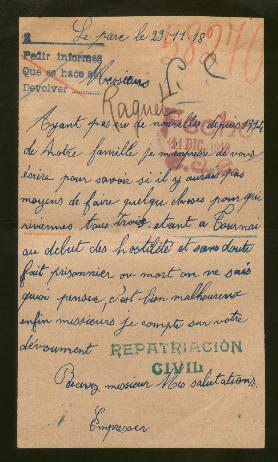 Le parc le 29.11.18
58276
Pedir informes
Que se hace sel
Devolver
Messieurs
Raquet
14 DIC. 1918
Ayant pas eu de nouvelles depuis 1914
de notre famille je m'enprese de vous
écrire pour savoir si il y aurais pas
moyens de faire quelque choses pour qui
revennes tous trois etant a Tournai
au debut des hostilité et sans doute
fait prisonnier ou mort on ne sais
quoi penser, c'est bien malheureux
enfin messieurs je compte sur votre
dévoument
REPATRIACIÓN
CIVIL
Recevez messieur Mes salutations
Empresser